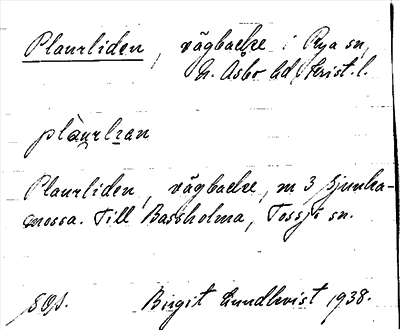 Plaurliden, vägbacke i Rya sn,
N. Åsbo hd, Krist. l.
Plaurliden, vägbacke, m 3 Sjunka-
mossa. Till Bassholma, Tossjö sn.
Birgit Lundkvist 1938.